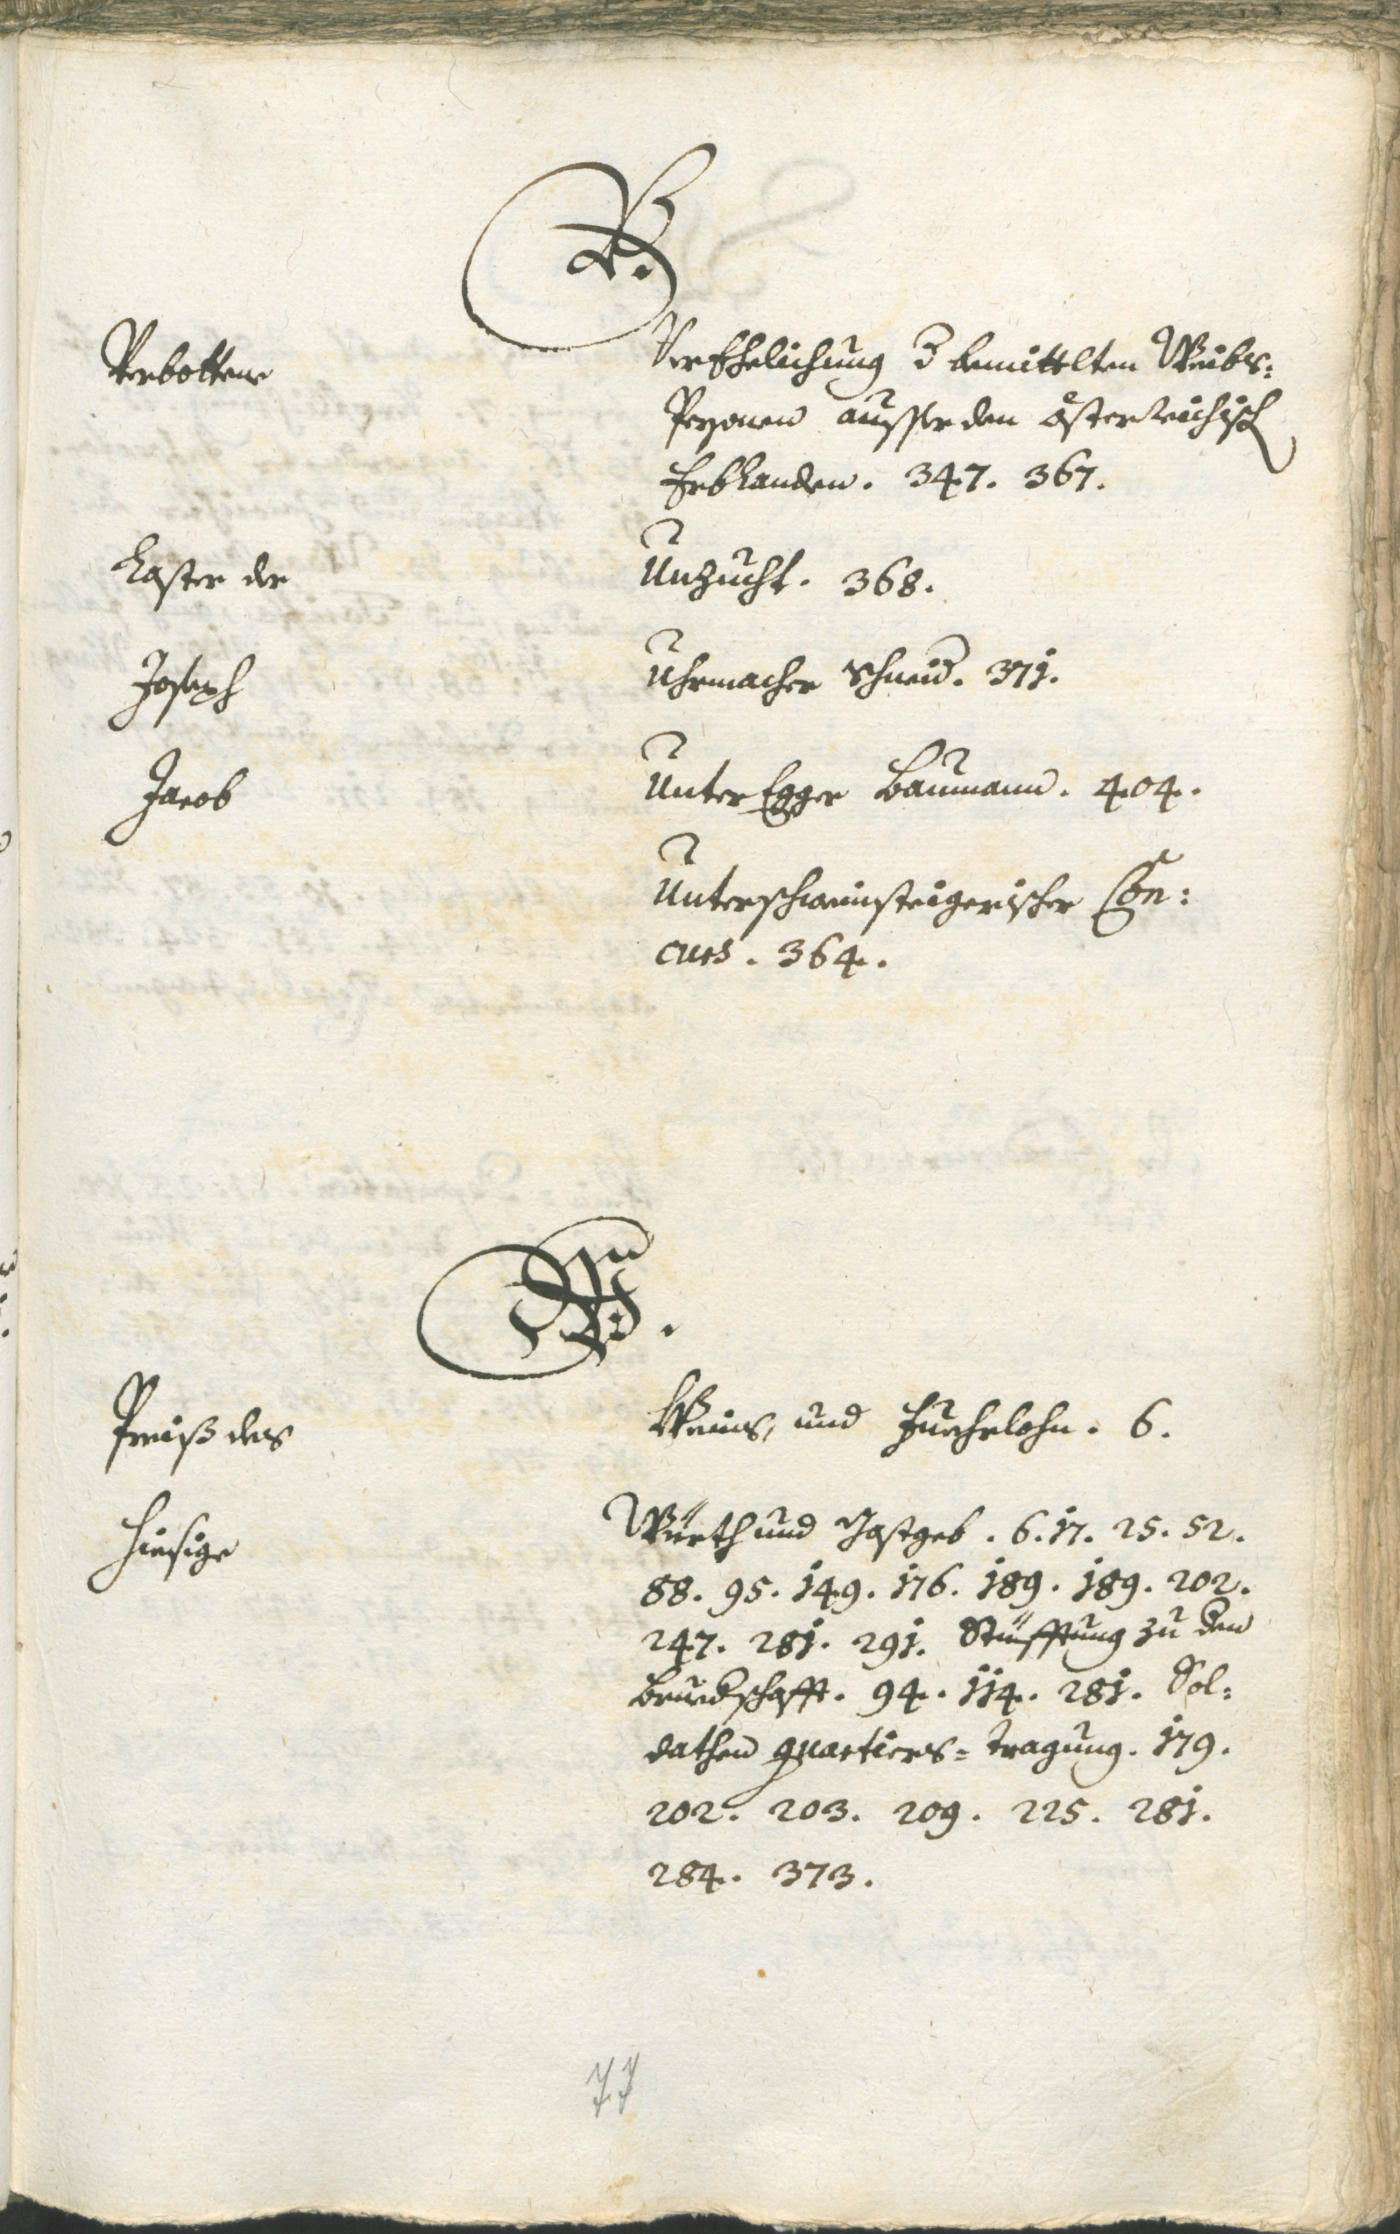 V.
Verbottene Verehelichung d bemittlten Weibs=
Persohnen ausser den österreichisch
Erblanden. 347. 367.
Laster der Unzucht. 368.
Joseph Uhrmacher Schneid. 371.
Jacob Unteregger Baumann. 404.
Unterschweinsteigerischer Con=
curs. 364.
W.
Preiß des Weins, und Fuehrlohn. 6.
Hiesige Würth und Gastgeb. 6. 17. 25. 52.
88. 95. 149. 176. 189. 189. 202.
247. 281. 291. Stüfftung zu den
Bruedschafft. 94. 114. 281. Sol=
dathen quartiers=tragung. 179.
202. 203. 209. 225. 281.
284. 373.
77